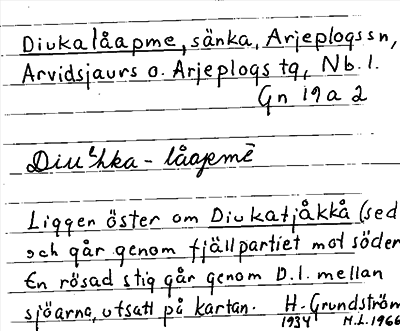 Diukalåapme, sänka, Arjeplogs sn,
Arvidsjaurs o. Arjeplogs tg, Nb. l.
Gn 19 a 2
Diuᵏhka - låapmē
Ligger öster om Diukatjåkkå (sed
och går genom fjällpartiet mot söder
En rösad stig går genom D.l. mellan
sjöarna, utsatt på kartan. H. Grundström
1934 H.L. 1966